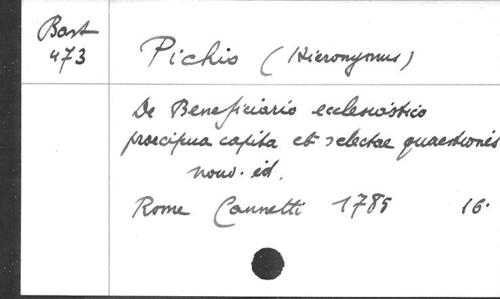 Bast
473
Pichio (Hieronymus)
De Beneficiario ecclesiástico
praecipua capita et selectae quaestiones
nouv. éd.
Rome Cannetti 1785 16.